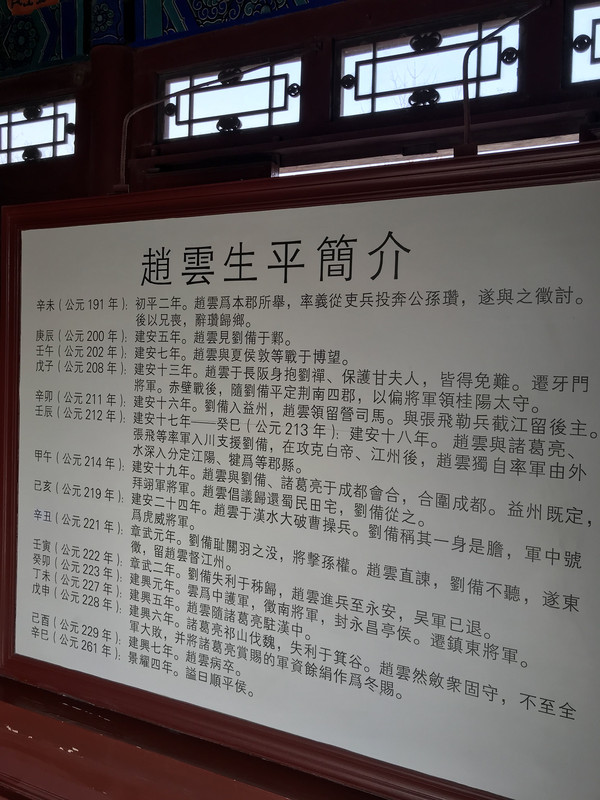 趙雲生平簡介
辛未（公元191年）：初平二年。趙雲爲本郡所舉，率義從吏兵投奔公孫瓚，遂與之徵討。
後以兄喪，辭瓚歸鄉。
庚辰（公元200年）：建安五年。趙雲見劉備于鄴。
壬午（公元202年）：建安七年。趙雲與夏侯敦等戰于博望。
戊子（公元208年）：建安十三年。趙雲于長阪身抱劉禪、保護甘夫人，皆得免難。遷牙門
將軍。赤壁戰後，隨劉備平定荆南四郡，以偏將軍領桂陽太守。
辛卯（公元211年）：建安十六年。劉備入益州，趙雲領留營司馬。與張飛勒兵截江留後主。
壬辰（公元212年）：建安十七年——癸巳（公元213年）：建安十八年。趙雲與諸葛亮、
張飛等率軍入川支援劉備，在攻克白帝、江州後，趙雲獨自率軍由外
水深入分定江陽、犍爲等郡縣。
甲午（公元214年）：建安十九年。趙雲與劉備、諸葛亮于成都會合，合圍成都。益州既定，
拜翊軍將軍。趙雲倡議歸還蜀民田宅，劉備從之。
己亥（公元219年）：建安二十四年。趙雲于漢水大破曹操兵。劉備稱其一身是膽，軍中號
爲虎威將軍。
辛丑（公元221年）：章武元年。劉備耻關羽之没，將擊孫權。趙雲直諫，劉備不聽，遂東
徵，留趙雲督江州。
壬寅（公元222年）：章武二年。劉備失利于秭歸，趙雲進兵至永安，吴軍已退。
癸卯（公元223年）：建興元年。雲爲中護軍，徵南將軍，封永昌亭侯。遷鎮東將軍。
丁未（公元227年）：建興五年。趙雲隨諸葛亮駐漢中。
戊申（公元228年）：建興六年。諸葛亮祁山伐魏，失利于箕谷。趙雲然斂衆固守，不至全
軍大敗，并將諸葛亮賞賜的軍資餘絹作爲冬賜。
己酉（公元229年）：建興七年。趙雲病卒。
辛巳（公元261年）：景耀四年。謚曰順平侯。